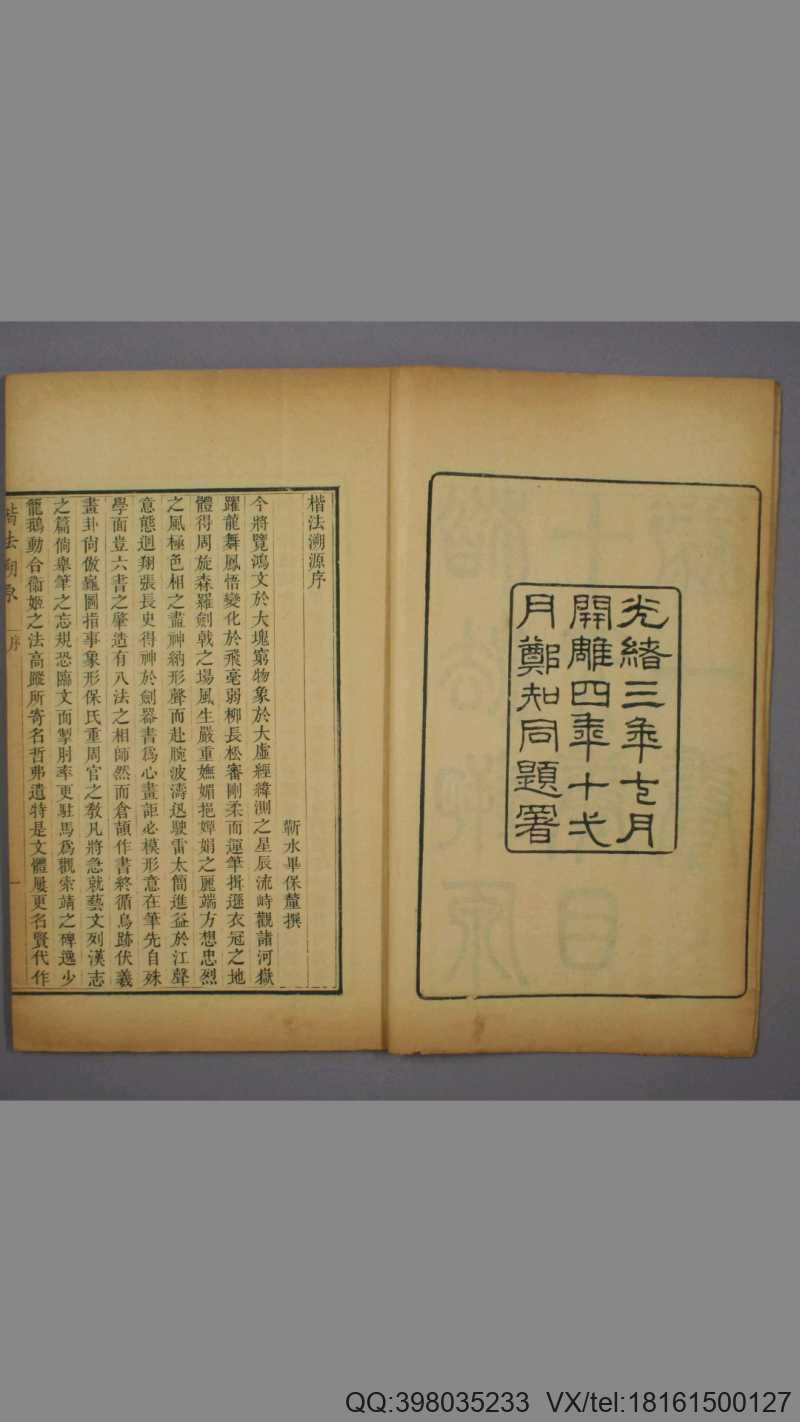 光緒三年七月
開雕四年十弍
月鄭知同題署
楷法溯源序
蘄水畢保釐撰
今將覽鴻文於大塊窮物象於大虛經緯測之星辰流峙觀諸河嶽
躍龍舞鳳悟變化於飛毫弱柳長松審剛柔而運筆揖遜衣冠之地
體得周旋森羅劍戟之場風生嚴重嫵媚挹嬋娟之麗端方想忠烈
之風極色相之盡神納形聲而赴腕波濤迅駛雷太簡進益於江聲
意態迴翔張長史得神於劍器書爲心畫詎必模形意在筆先自殊
學面豈六書之肇造有八法之相師然而倉頡作書終循鳥跡伏羲
畫卦尙倣龜圖指事象形保氏重周官之教凡將急就藝文列漢志
之篇倘舉筆之忘規恐臨文而掣肘率更駐馬爲觀索靖之碑逸少
籠鵝動合衞姬之法高蹤所寄名哲弗遺特是文體屢更名賢代作
楷法溯原
序
一
QQ:398035233 VX/tel:18161500127